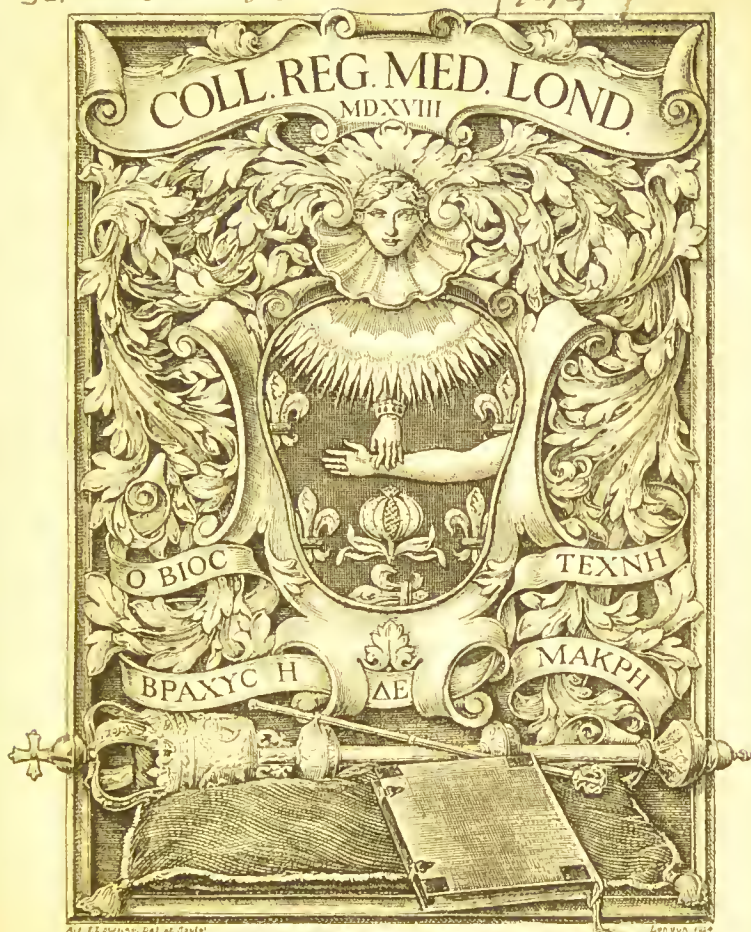 COLL. REG. MED. LOND.
MDXVIII
Ο ΒΙΟC
ΤΕΧΝΗ
ΒΡΑΧΥC Η
ΔΕ
ΜΑΚΡΗ
London